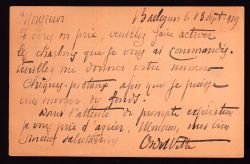 Monsieur
Baelegem le 13 Sept
Je vous en prie, veuillez faire activer
le charbons que je vous ai commandés.
Veuillez me donner votre numero
chèques-postaux afin que je puisse
vous envoyer de fonds.
Dans l'attente de prompte expédition
je vous prie d'agréer, Monsieur, mes bien
sincères salutations